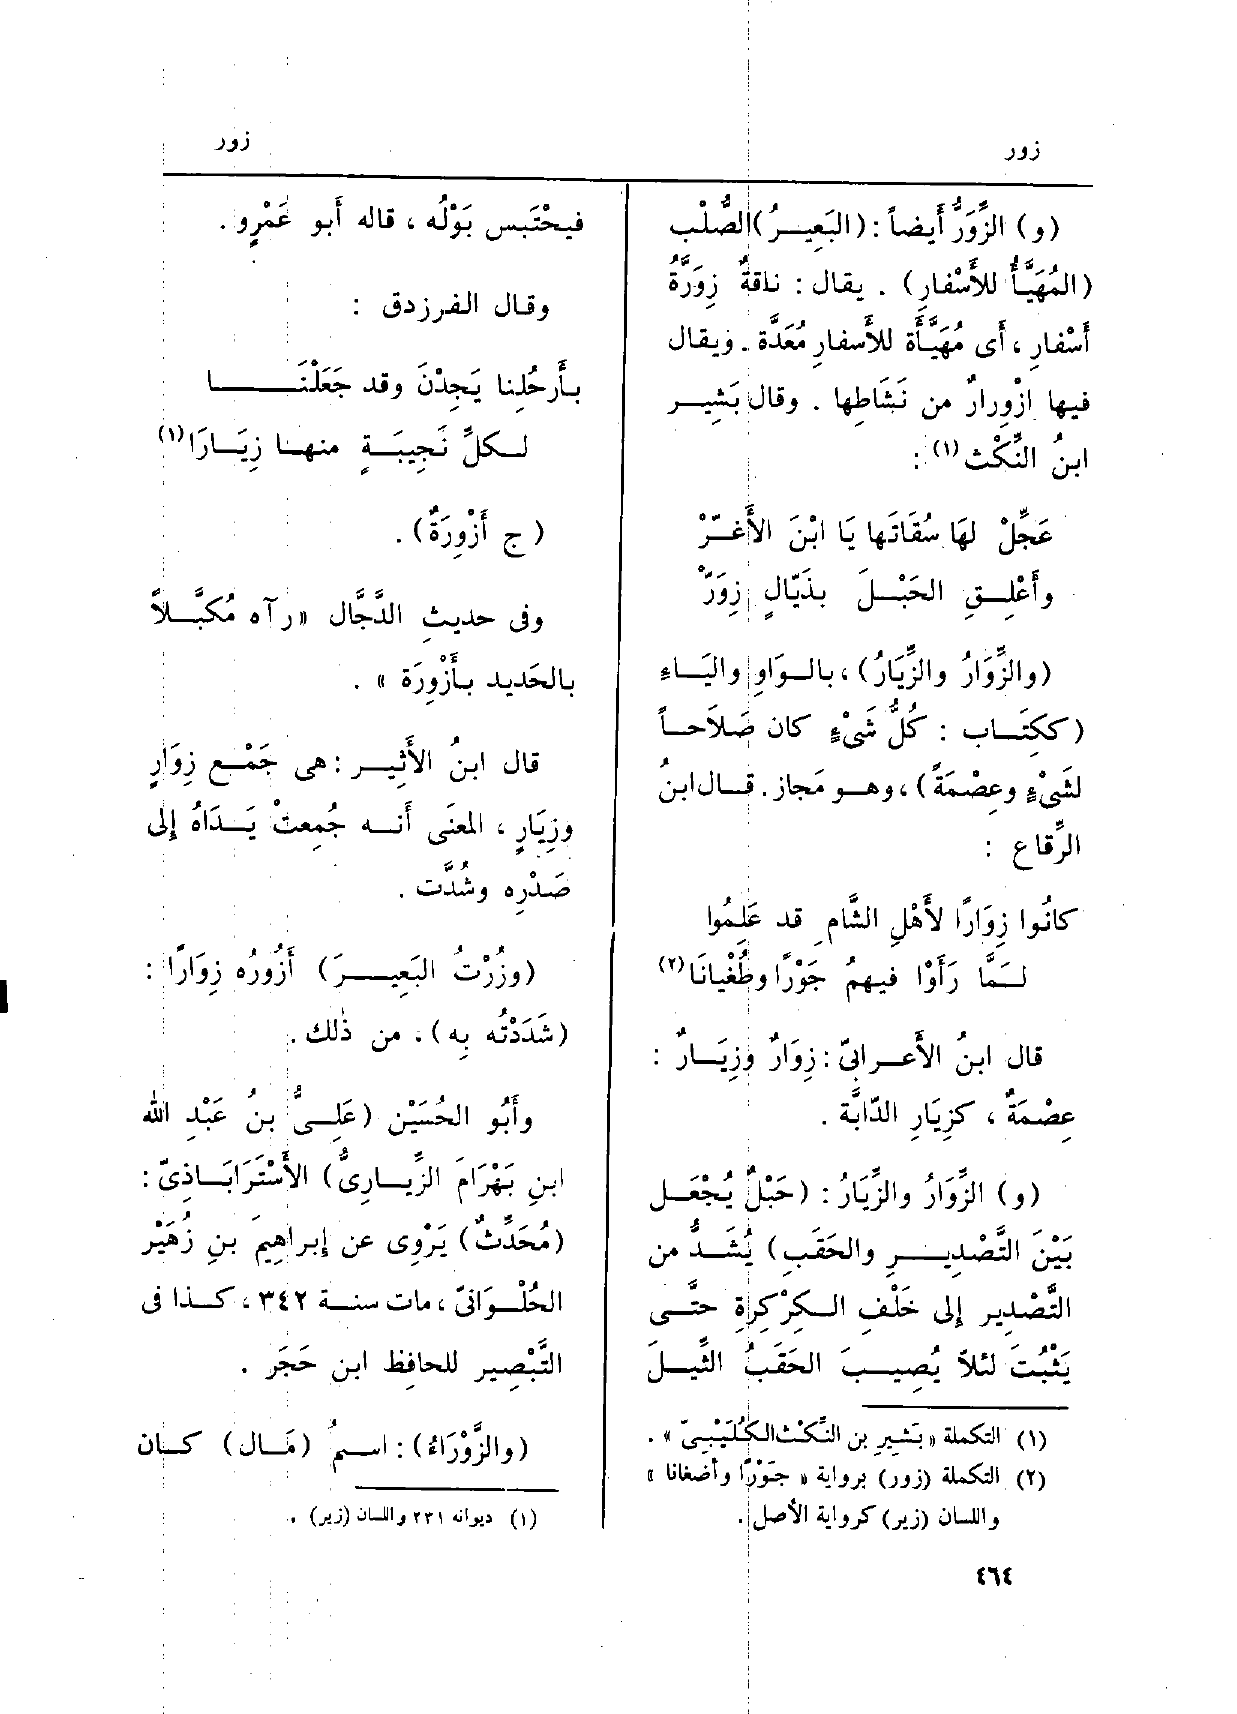 زور
زور
(و) الزِّوَرُّ أيضاً : (البَعِيرُ) الصُّلْب
(المُهَيَّأُ للأَسْفَارِ) . يقال : ناقةٌ زِوَرَّةُ
أَسْفارٍ ، أى مُهَيَّأَة للأَسفارِ مُعَدَّة . ويقال
فيها ازْوِرارٌ من نَشَاطِها . وقال بَشِير
ابنُ النِّكْث (١) :
عَجِّلْ لهَا سُقَاتَها يَا ابْنَ الأَغَرّْ
وأَعْلِقِ الحَبْلَ بذَيَّالٍ زِوَرّْ
(والزِّوَارُ والزِّيَارُ) ، بالواوِ واليَاءِ
(ككِتَاب : كُلُّ شَىْءٍ كان صَلاَحاً
لشَىْءٍ وعِصْمَةً) ، وهو مَجاز . قال ابنُ
الرِّقاع :
كانُوا زِوَارًا لأَهْلِ الشَّامِ قد عَلِمُوا
لمَّا رَأَوْا فيهمُ جَوْرًا وطُغْيانَا (٢)
قال ابنُ الأَعرابىّ : زِوَارٌ وزِيَارٌ :
عِصْمَةٌ ، كزِيَارِ الدّابَّة .
(و) الزِّوَارُ والزِّيَارُ : (حَبْلٌ يُجْعَل
بَيْنَ التَّصْدِيرِ والحَقَبِ) يُشَدُّ من
التَّصْدِير إلى خَلْفِ الكِرْكِرَة حتَّى
يَثْبُتَ لئلاَّ يُصِيبَ الحَقَبُ الثِّيلَ
(١) التكملة « بَشِيرِ بن النِّكْث الكُلَيْبِىّ » .
(٢) التكملة (زور) برواية « جَوْرًا وأضغانا »
واللسان (زير) كرواية الأصل .
٤٦٤
فيحْتَبِس بَوْلُه ، قاله أَبو عَمْرٍو .
وقال الفرزدق :
بأَرحُلِنا يَحِدْنَ وقد جَعَلْنَا
لكلِّ نَجِيبَةٍ منها زِيَارَا (١)
(ج أَزْوِرَةٌ) .
وفى حديثِ الدَّجَّال « رآه مُكَبَّلاً
بالحَديد بأَزْوِرَة » .
قال ابنُ الأَثِير : هى جَمْع زِوَارٍ
وزِيَارٍ ، المعنَى أَنه جُمِعتْ يَدَاهُ إلى
صَدْرِه وشُدَّت .
(وزُرْتُ البَعِيرَ) أَزُورُه زِوَارًا :
(شَدَدْتُه بِه) . من ذٰلك .
وأَبُو الحُسَيْن (عَلِىُّ بنُ عَبْدِ الله
ابنِ بَهْرَامَ الزِّيَارِىُّ) الأَسْتَرَابَاذِىّ :
(مُحَدِّثٌ) يَرْوِى عن إبراهِيمَ بنِ زُهَيْر
الحُلْوَانىّ ، مات سنة ٣٤٢ ، كذا فى
التَّبْصِير للحافِظ ابن حَجَر .
(والزَّوْرَاءُ) : اسمُ (مَال) كان
(١) ديوانه ٢٣١ واللسان (زير) .